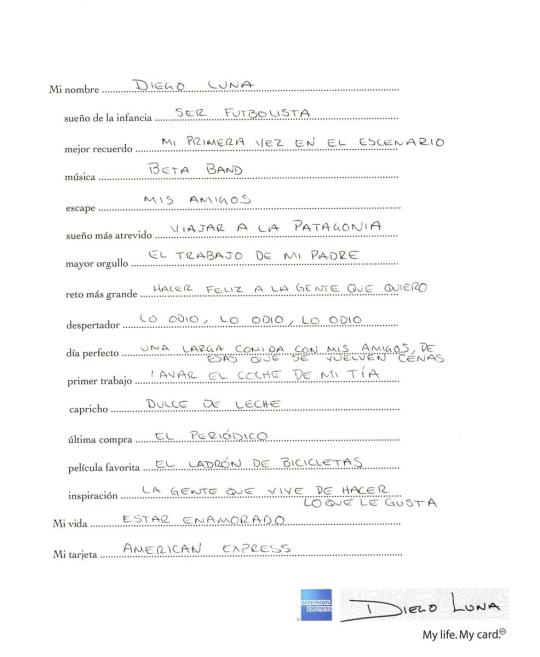 Mi nombre DIEGO LUNA
sueño de la infancia SER FUTBOLISTA
mejor recuerdo MI PRIMERA VEZ EN EL ESCENARIO
música BETA BAND
escape MIS AMIGOS
sueño más atrevido VIAJAR A LA PATAGONIA
mayor orgullo EL TRABAJO DE MI PADRE
reto más grande HACER FELIZ A LA GENTE QUE QUIERO
despertador LO ODIO, LO ODIO, LO ODIO
día perfecto UNA LARGA COMIDA CON MIS AMIGOS, DE
ESAS QUE SE VUELVEN CENAS
primer trabajo LAVAR EL COCHE DE MI TÍA
capricho DULCE DE LECHE
última compra EL PERIÓDICO
película favorita EL LADRÓN DE BICICLETAS
inspiración LA GENTE QUE VIVE DE HACER
LO QUE LE GUSTA
Mi vida ESTAR ENAMORADO
Mi tarjeta AMERICAN EXPRESS
AMERICAN EXPRESS
DIEGO LUNA
My life. My card.